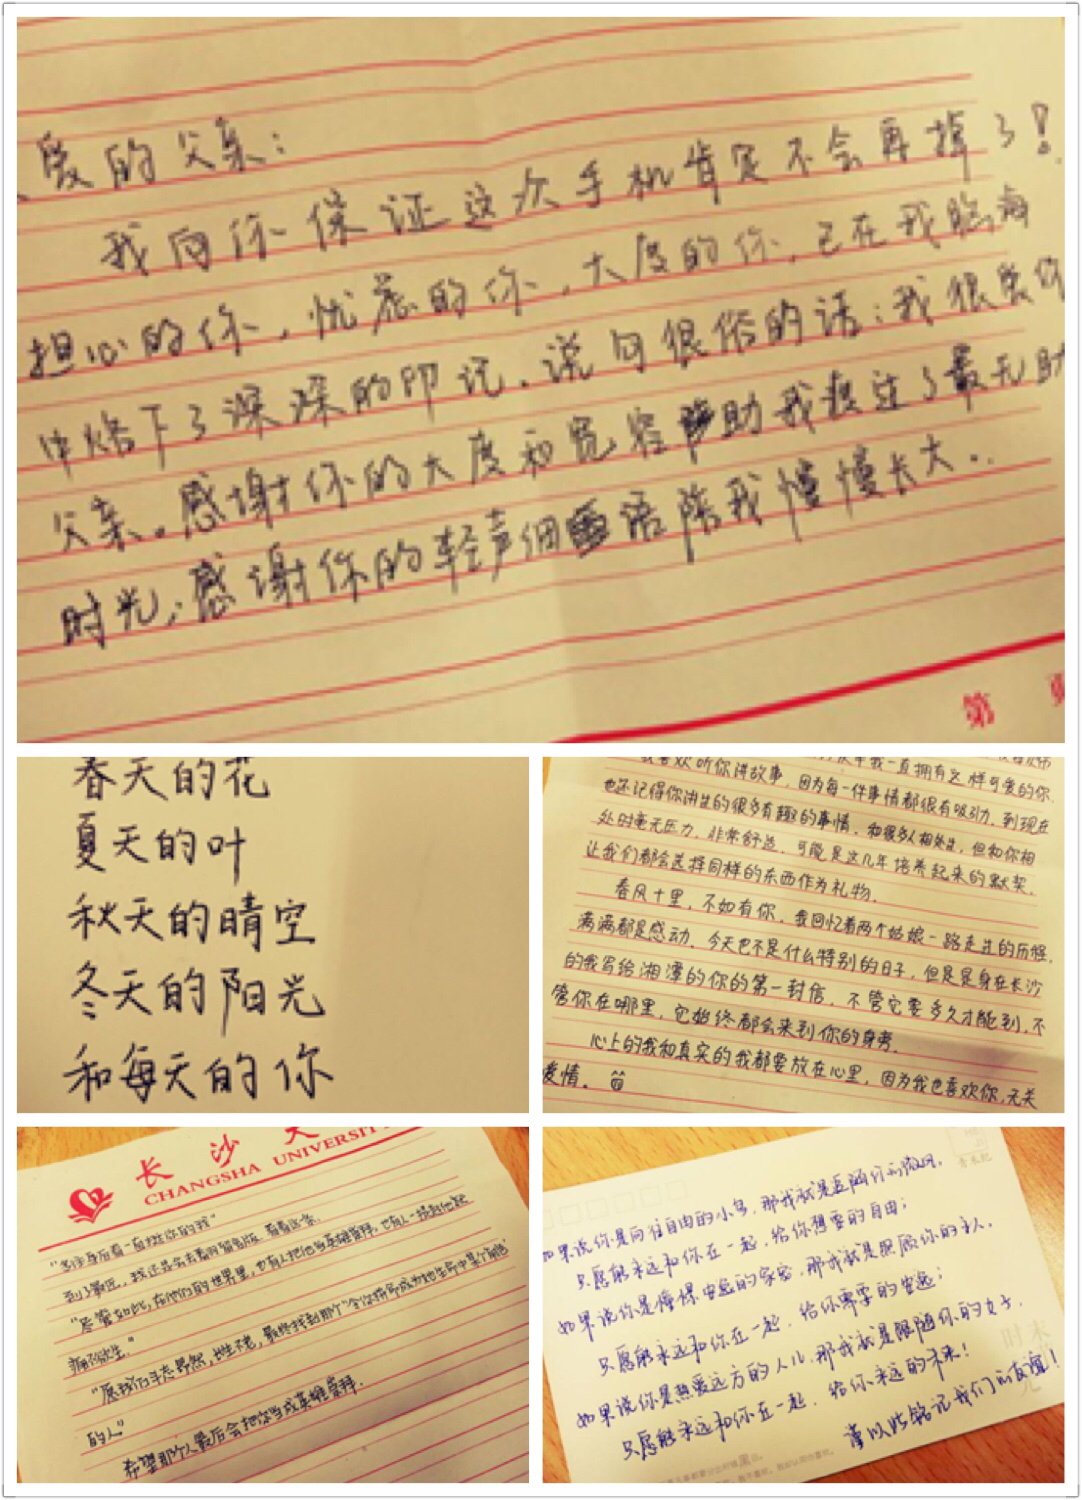 爱的父亲：
我向你保证这次手机肯定不会再掉了！
担心的你，忧虑的你，大度的你，已在我脑海
中烙下了深深的印记。说句很俗的话：我很爱你
父亲。感谢你的大度和宽容帮助我度过了最无助
时光；感谢你的轻声细语陪我慢慢长大..
第
春天的花
夏天的叶
秋天的晴空
冬天的阳光
和每天的你
我一直拥有这样可爱的你.
喜欢听你讲故事，因为每一件事情都很有吸引力，到现在
也还记得你讲的很多有趣的事情。和很多人相处过，但和你相
处时毫无压力，非常舒适。可能是这几年培养起来的默契，
让我们都会选择同样的东西作为礼物。
春风十里，不如有你。我回忆着两个姑娘一路走过的历程，
满满都是感动。今天也不是什么特别的日子，但是是身在长沙
的我写给湘潭的你的第一封信，不管它要多久才能到，不
管你在哪里，它始终都会来到你的身旁。
心上的我和真实的我都要放在心里，因为我也喜欢你，无关
爱情。
长沙大
CHANGSHA UNIVERSITY
到了最近，我还是会去看网易音版，看看这条.
"尽管如此，在他们的世界里，也有人把他当英雄崇拜，也有人一提起他就
痛不欲生."
的人."
希望那个人最后会把你当成英雄崇拜.
如果说你是向往自由的小鸟，那我就是的微风，
只愿能永远和你在一起，给你想要的自由；
如果说你是憧憬安逸的家宠，那我就是照顾你的主人，
只愿能永远和你在一起，给你需要的安逸；
如果说你是热爱远方的人儿，那我就是跟随你的女子，
只愿能永远和你在一起，给你永远的未来！
谨以此铭记我们的友谊！